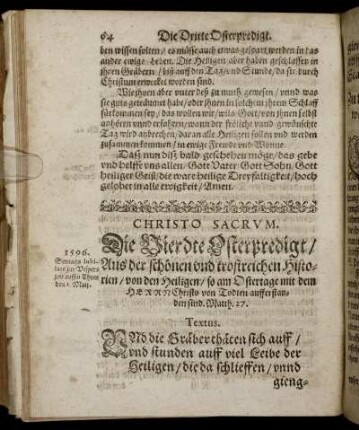 94 Die Dritte Osterpredigt.
ben wissen solten / es müsse auch etwas gespart werden in das
ander ewige Leben. Die Heiligen aber haben geschlaffen in
ihren Gräbern / biß auff den Tag vnd Stunde / da sie durch
Christum erwecket worden sind.
Wie ihnen aber vnter deß zu muth gewesen / vnnd was
sie guts geträumt habe / oder ihnen in solchem ihrem Schlaff
fürkommen sey / das wollen wir / wils Gott / von ihnen selbst
anhören vnnd erfahren / wenn der fröliche vnnd gewünschte
Tag wird anbrechen / daran alle Heiligen sollen vnd werden
zusammen kommen / in ewige Frewde vnd Wonne.
Daß nun diß bald geschehen möge / das gebe
vnd helffe vns allen / Gott Vater Gott Sohn, Gott
heiliger Geist / die ware heilige Dreyfaltigkeit / hoch
gelobet in alle ewigkeit / Amen.
CHRISTO SACRVM.
Die Vierdte Osterpredigt /
1596.
Aus der schönen vnd trostreichen Histo-
rien / von den Heiligen / so am Ostertage mit dem
HERRN Christo von Todten aufferstan-
den sind. Matth. 27.
Textus.
VNd die Gräber thäten sich auff /
vnd stunden auff viel Leibe der
Heiligen / die da schlieffen / vnnd
gieng-